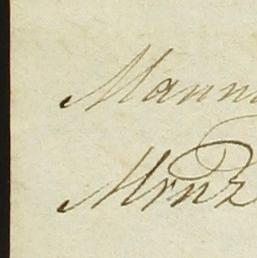 Mann
Mrnz